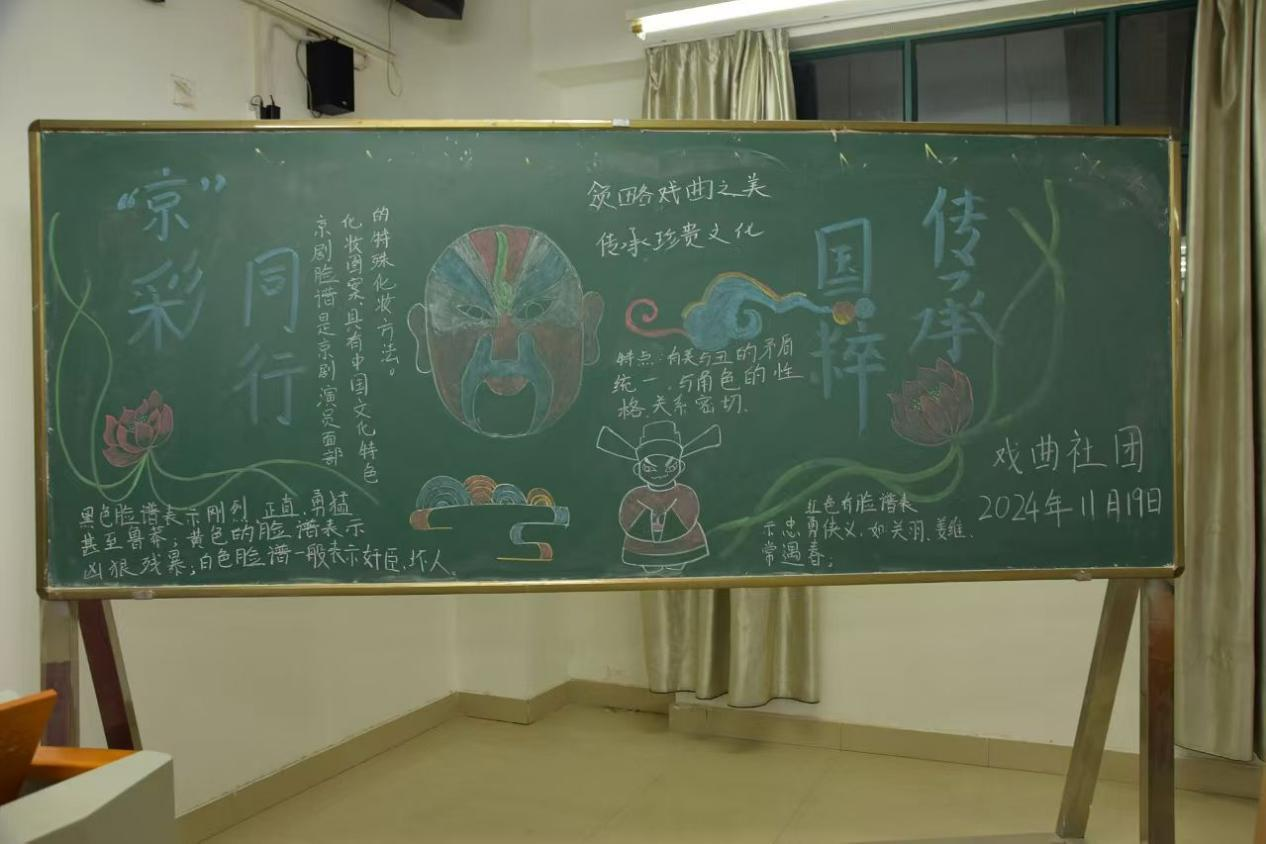 “京”
彩
同
行
的特殊化妆方法。
化妆图案.具有中国文化特色
京剧脸谱是京剧演员面部
领略戏曲之美
传承珍贵文化
传承
国粹
特点:有美与丑的矛盾
统一.与角色的性
格.关系密切.
黑色脸谱表示刚烈.正直.勇猛
甚至鲁莽;黄色的脸谱表示
凶狠残暴;白色脸谱一般表示奸臣.坏人.
红色的脸谱表
示忠勇侠义.如关羽.姜维.
常遇春;
戏曲社团
2024年11月19日